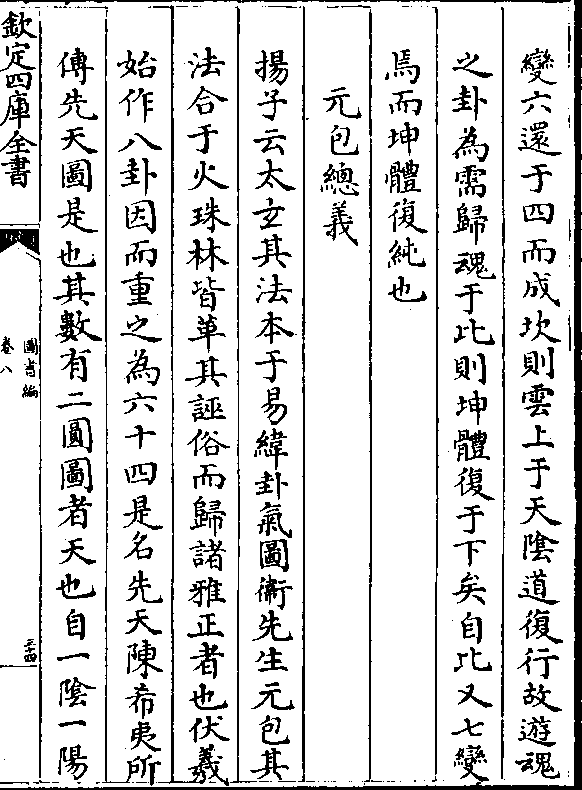 變六還于四而成坎則雲上于天陰道復行故遊魂
之卦為需歸魂于比則坤體復于下矣自比又七變
焉而坤體復純也
元包總義
揚子云太玄其法本于易緯卦氣圖衞先生元包其
法合于火珠林皆革其誣俗而歸諸雅正者也伏羲
始作八卦因而重之為六十四是名先天陳希夷所
傳先天圖是也其數有二圓圖者天也自一陰一陽
欽定四庫全書
圖書編
卷八
三十四